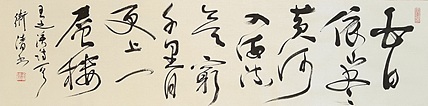 白日
依山盡
黄河
入海流
欲窮
千里目
更上一
層樓
王之涣诗